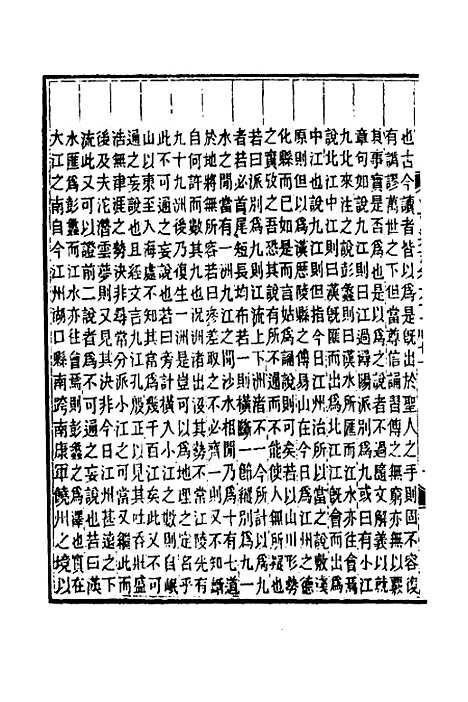 也古今讀者皆以為是既出於聖人之手則固不容復
有譌謬萬世之下但當尊信誦習傳之無窮亦無以覈
其事實是否為也是以為之說者不過隨文解義以就
章句如說九江則曰江過潯陽派別為九或曰有小江
九北來注之說彭蠡則曰漢水所匯而江水亦往會焉
說北江中江則曰漢既匯而出為北江江既會而出為
中江也說九江則但指今日江州治所以當之說敷淺
原則但以為漢歷陵縣之山在今日之德
化縣而已如是而言姑為誦說則可矣若以山川形勢
之實攷之吾恐其說有所不通而不能使人無疑也
若曰派別為九則江流上下洲渚不一今所計以為九
者若必首尾短長均布若一則橫斷一節縱別為九一
水之間當有一洲九江之間沙水相間乃為十有七道
於地將無所容若曰參差取之不必齊一則又不知斷
自何許而數其九也況洲渚出沒其勢不常江陵先有
九十九洲後乃復生一洲是豈可以為地理之定名乎
此不可通之妄說也若曰旁計橫入小江之數則自岷
山以東至入海處不知其當為幾千百江矣此又不可
過之妄說也且經文言九江孔殷正以見其吐吞壯盛
浩無津涯之勢決非尋常分派小江之可當又繼此而
後及夫沱潛雲夢則又見其決非今日江州甚遠之下
流此又可以證前二說者為不可通之妄說也若曰漢
水匯為彭蠡而江水亦往會焉則彭蠡之為澤也實在
大江之南自今江州湖口縣南跨南康軍饒州之境以